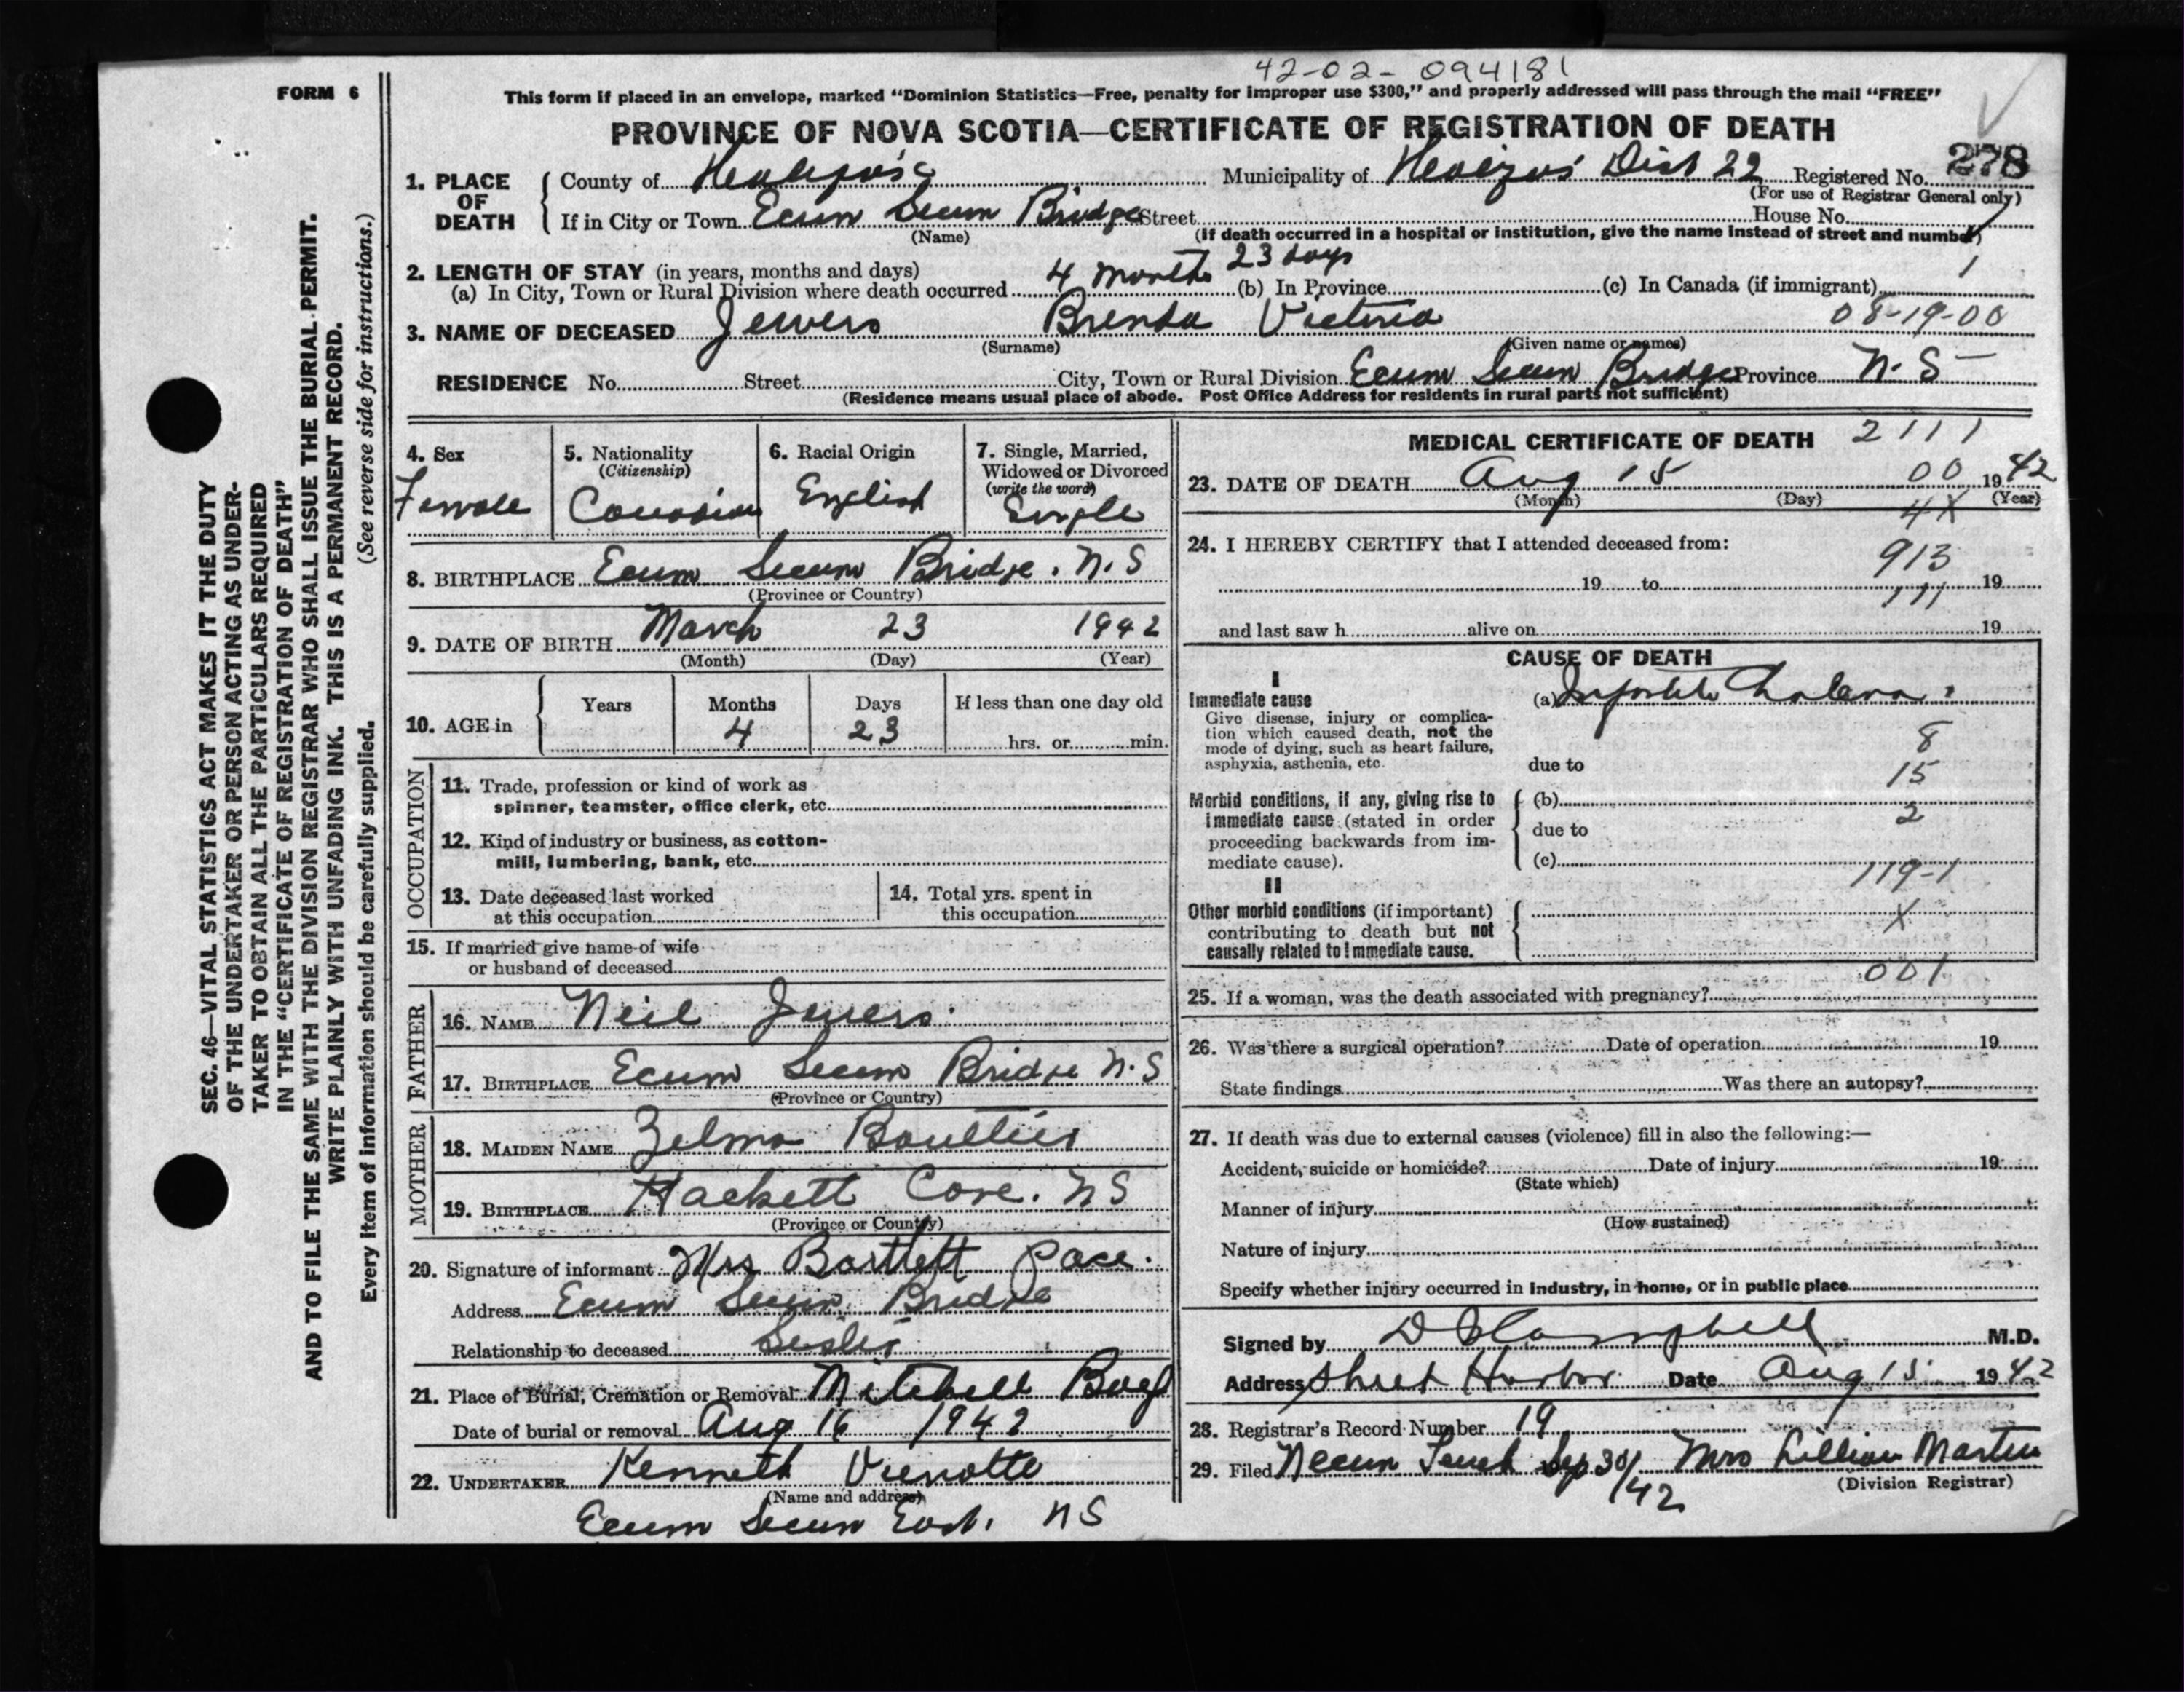 42-02-094181
FORM 6
This form if placed in an envelope, marked "Dominion Statistics—Free, penalty for improper use $300," and properly addressed will pass through the mail "FREE"
PROVINCE OF NOVA SCOTIA—CERTIFICATE OF REGISTRATION OF DEATH
278
1. PLACE OF DEATH
County of Municipality of Dist 22 Registered No.
(For use of Registrar General only)
If in City or Town Ecum Secum Bridge Street House No.
(Name) (If death occurred in a hospital or institution, give the name instead of street and number)
2. LENGTH OF STAY (in years, months and days)
(a) In City, Town or Rural Division where death occurred 4 months 23 days (b) In Province (c) In Canada (if immigrant) 1
3. NAME OF DECEASED Jewers Brenda Victoria 08-19-00
(Surname) (Given name or names)
RESIDENCE No. Street City, Town or Rural Division Ecum Secum Bridge Province N.S
(Residence means usual place of abode. Post Office Address for residents in rural parts not sufficient)
4. Sex
Female
5. Nationality
(Citizenship)
Canadian
6. Racial Origin
English
7. Single, Married,
Widowed or Divorced
(write the word)
Single
8. BIRTHPLACE Ecum Secum Bridge. N.S
(Province or Country)
9. DATE OF BIRTH March 23 1942
(Month) (Day) (Year)
10. AGE in
Years Months Days If less than one day old
4 23 hrs. or min.
OCCUPATION
11. Trade, profession or kind of work as
spinner, teamster, office clerk, etc.
12. Kind of industry or business, as cotton-
mill, lumbering, bank, etc.
13. Date deceased last worked
at this occupation
14. Total yrs. spent in
this occupation
15. If married give name of wife
or husband of deceased
FATHER
16. NAME Neil Jewers
17. BIRTHPLACE Ecum Secum Bridge N.S
(Province or Country)
MOTHER
18. MAIDEN NAME Zelma Boutilier
19. BIRTHPLACE Hackett Cove. NS
(Province or Country)
20. Signature of informant Mrs Bartlett Pace.
Address Ecum Secum Bridge
Relationship to deceased
21. Place of Burial, Cremation or Removal Mitchell Bay
Date of burial or removal Aug 16 1942
22. UNDERTAKER Kenneth Vienotte
(Name and address)
Ecum Secum East. NS
MEDICAL CERTIFICATE OF DEATH 2111
23. DATE OF DEATH Aug 15 00 1942
(Month) (Day) (Year)
4X
24. I HEREBY CERTIFY that I attended deceased from:
913
19 to 19
111
and last saw h alive on 19
CAUSE OF DEATH
I
Immediate cause
Give disease, injury or complica-
tion which caused death, not the
mode of dying, such as heart failure,
asphyxia, asthenia, etc.
(a) Infantile Cholera.
8
due to 15
Morbid conditions, if any, giving rise to
immediate cause (stated in order
proceeding backwards from im-
mediate cause).
(b)
2
due to
(c)
119-1
II
Other morbid conditions (if important)
contributing to death but not
causally related to immediate cause.
X
001
25. If a woman, was the death associated with pregnancy?
26. Was there a surgical operation? Date of operation 19
State findings Was there an autopsy?
27. If death was due to external causes (violence) fill in also the following:—
Accident, suicide or homicide? Date of injury 19
(State which)
Manner of injury
(How sustained)
Nature of injury
Specify whether injury occurred in industry, in home, or in public place
Signed by Campbell M.D.
Address Sheet Harbor Date Aug 15 1942
28. Registrar's Record Number 19
29. Filed Necum Teuch Sep 30/42 Mrs Lillian Martin
(Division Registrar)
SEC. 46—VITAL STATISTICS ACT MAKES IT THE DUTY
OF THE UNDERTAKER OR PERSON ACTING AS UNDER-
TAKER TO OBTAIN ALL THE PARTICULARS REQUIRED
IN THE "CERTIFICATE OF REGISTRATION OF DEATH"
AND TO FILE THE SAME WITH THE DIVISION REGISTRAR WHO SHALL ISSUE THE BURIAL PERMIT.
WRITE PLAINLY WITH UNFADING INK. THIS IS A PERMANENT RECORD.
Every item of information should be carefully supplied. (See reverse side for instructions.)